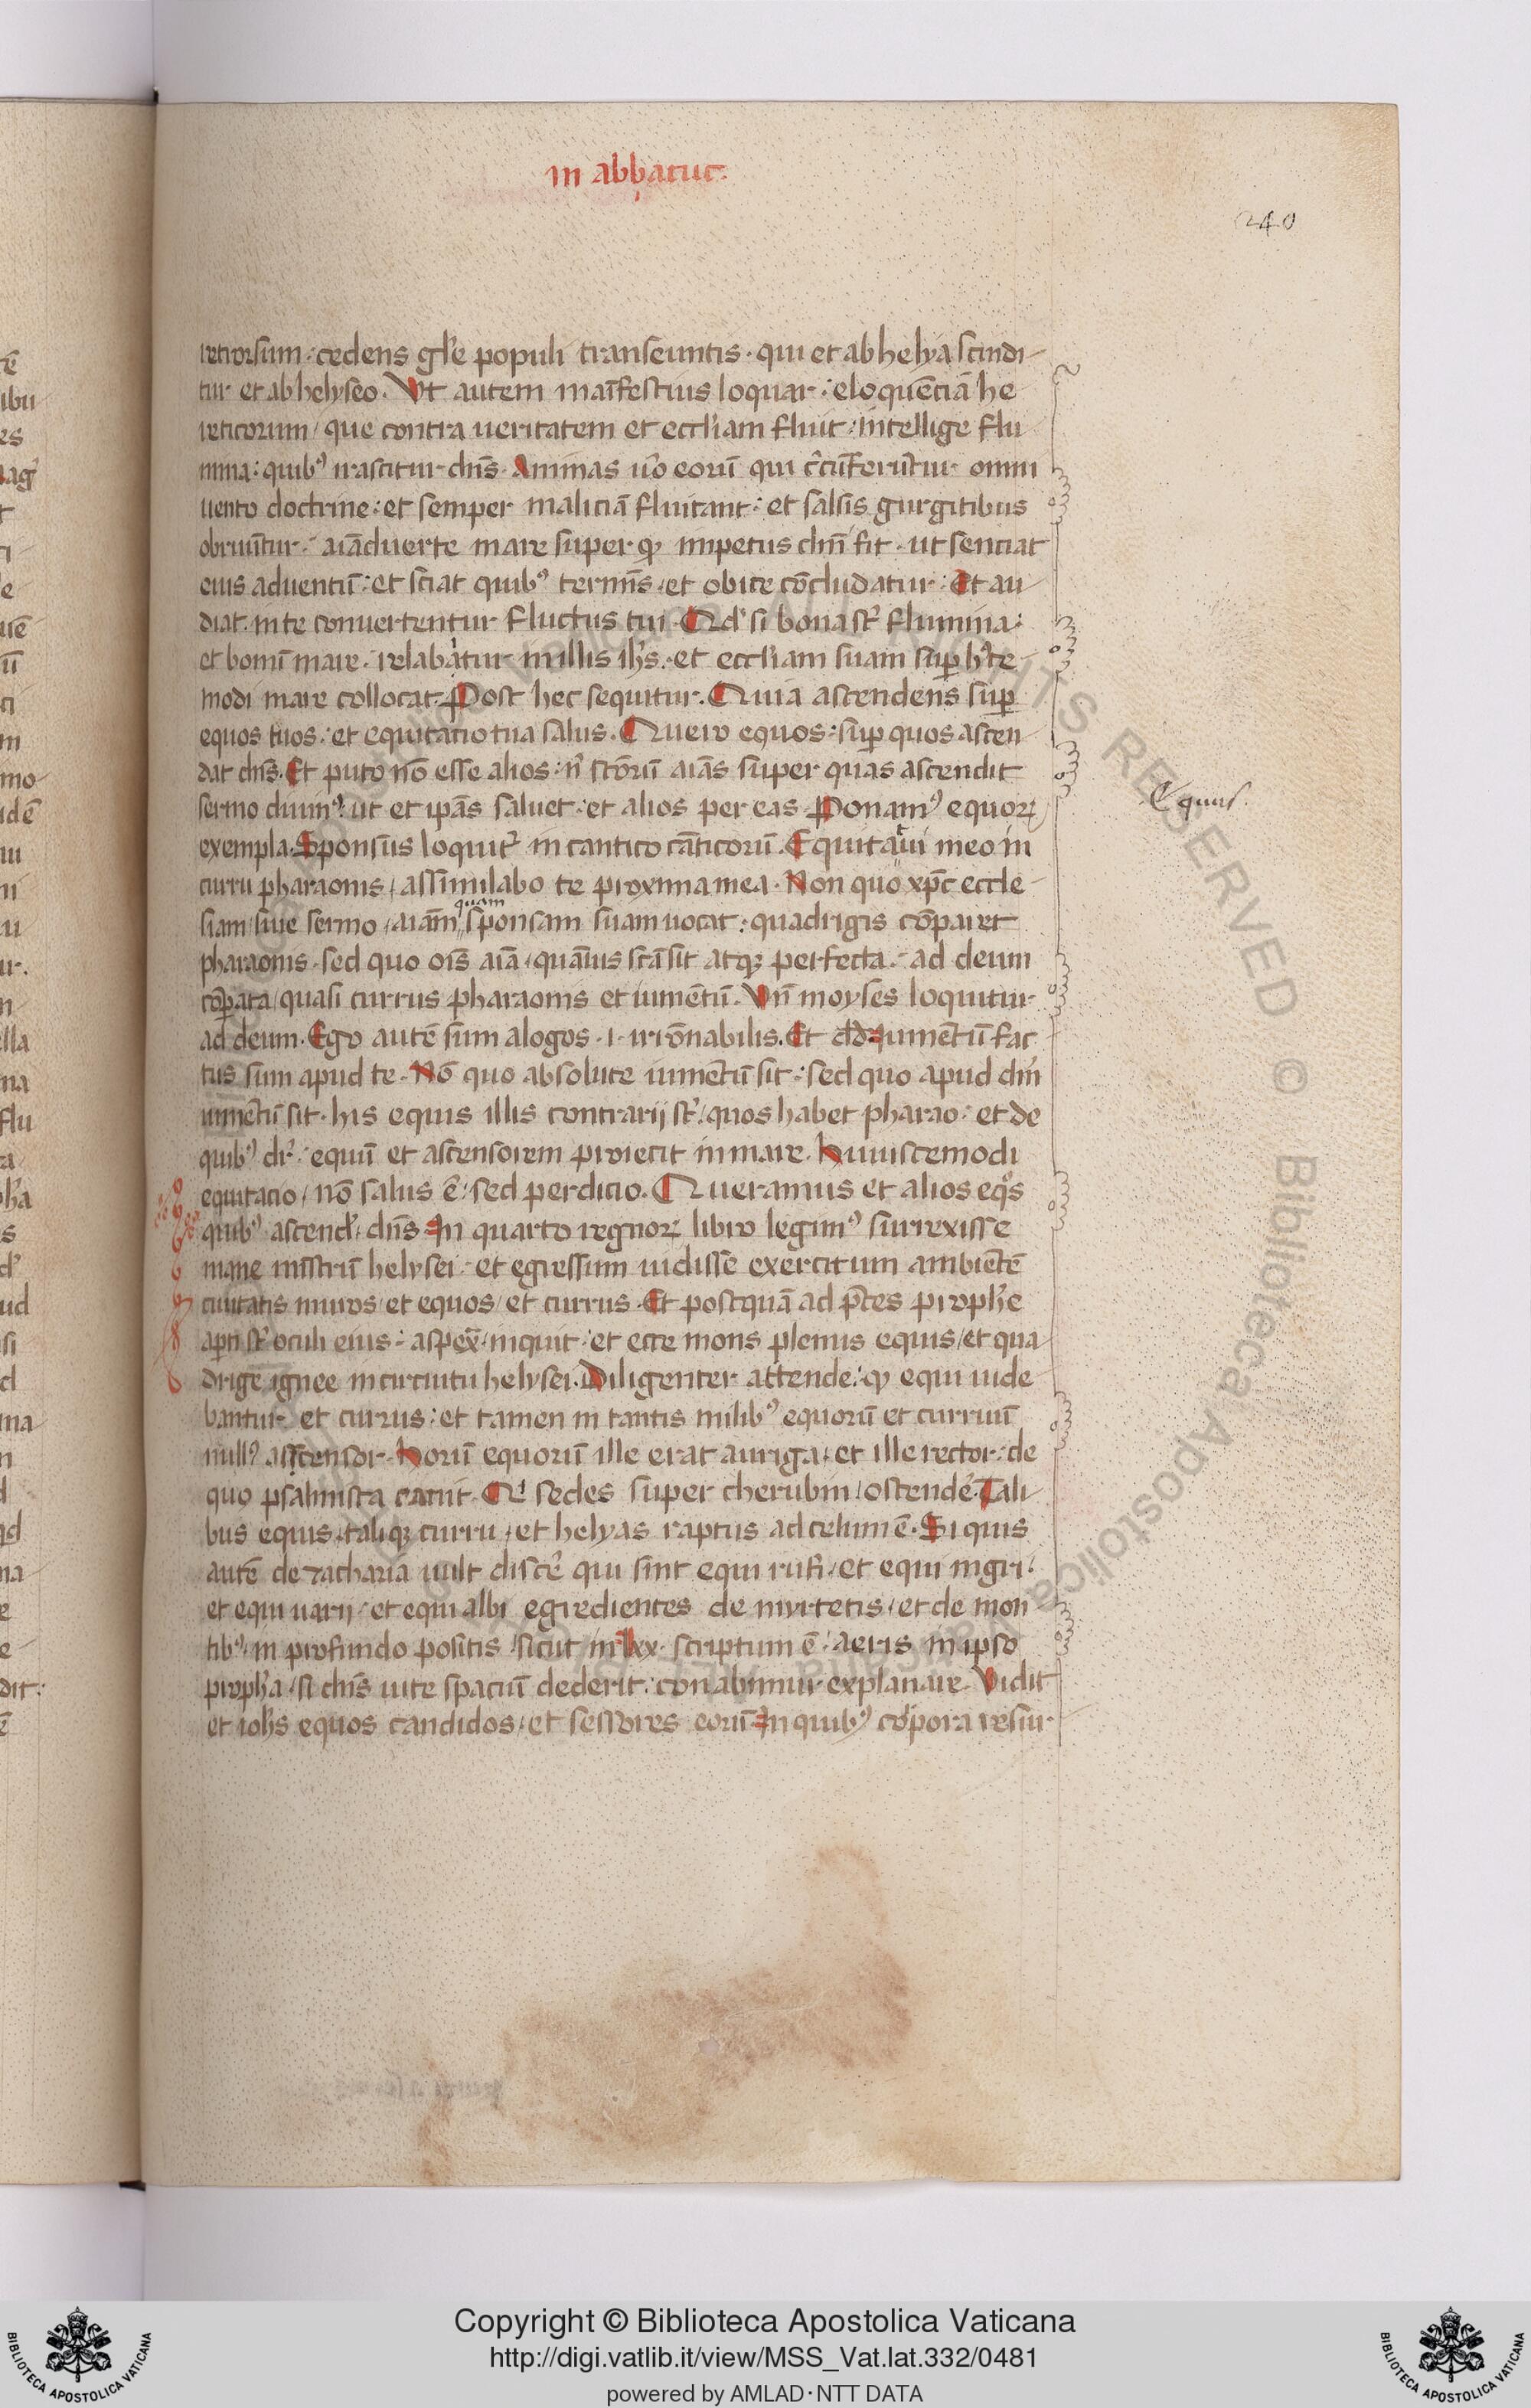 in abbacuc.
240
retrorsum: cedens gl'e populi transeuntis. qui et ab helya scindi-
tur et ab helyseo. Vt autem maīfestius loquar: eloquēciā he
reticorum / que contra ueritatem et eccl'iam fluit: intellige flu
mina: quib⁹ irascitur dn̄s. Animas u̓o eorū qui c̓cūferūtur omni
uento doctrine: et semper maliciā fluitant: et salsis gurgitibus
obruūtur: aīaduerte mare super qđ impetus dn̄i fit. ut senciat
eius aduentū: et sciat quib⁹ termīs. et obice cōcludatur. Et au-
diat. in te conuertentur fluctus tui. Qđ si bona st̄ flumina:
et bonū mare. relabātur in illis ih̄s. et eccl'iam suam sup̄ h̓ꝰce
modi mare collocat. Post hec sequitur. Quia ascendens sup̄
equos tuos: et equitatio tua salus. Quero equos: sup̄ quos ascen
dat dn̄s. Et puto nō esse alios: n̓ scōrū aīas super quas ascendit
sermo diuin⁹: ut et ip̄as saluet: et alios per eas. Ponam⁹ equoꝝ
Equus.
exempla. Sponsus loquit̓ in cantico cāticorū. Equitatui meo in
curru pharaonis / assimilabo te proxima mea. Non quo xp̄c eccle-
siam / siue sermo / aīam quam sponsam suam uocat: quadrigis cōparet
pharaonis. sed quo oīs aīa / quāuis scā sit atqꝫ perfecta. ad deum
cōparata / quasi currus pharaonis et iumētū. Vn̄ moyses loquitur
ad deum. Ego autē sum alogos .i. irrōnabilis. Et dđ. iumētū fac-
tus sum apud te. Nō quo absolute iumētū sit: sed quo apud dn̄i
iumētū sit. his equis illis contrarij st̄ / quos habet pharao: et de
quib⁹ dr̓: equū et ascensorem proiecit in mare. Huiuscemodi
equitacio / nō salus ē: sed perdicio. Queramus et alios eqͦs
quib⁹ ascend̓. dn̄s. In quarto regnoꝝ libro legim⁹ surrexisse
mane mīstrū helysei: et egressum uidisse exercitum ambiētē
ciuitatis muros / et equos / et currus. Et postquā ad p̄ces proph'e
apti st̄ oculi eius: aspex̄ / inquit: et ecce mons plenus equis / et qua-
drige ignee in circuitu helysei. Diligenter attende: qđ equi uide-
bantur et currus: et tamen in tantis milib⁹ equorū et curruū
null⁹ ascensor. Horū equorū ille erat auriga: et ille rector: de
quo psalmista canit. Qͥ sedes super cherubin / ostendē. Tali-
bus equis / taliqꝫ curru / et helyas raptus ad celum ē. Si quis
autē de zacharia uult discē qui sint equi rufi / et equi nigri:
et equi uarij / et equi albi egredientes de myrtetis / et de mon-
tib⁹ in profundo positis / sicut in lxx. scriptum ē: aeris in ipso
proph'a / si dn̄s uite spaciū dederit: conabimur explanare. Vidit
et ioh̄s equos candidos / et sessores eorū. In quib⁹ corpora resur-
Copyright © Biblioteca Apostolica Vaticana
http://digi.vatlib.it/view/MSS_Vat.lat.332/0481
powered by AMLAD·NTT DATA